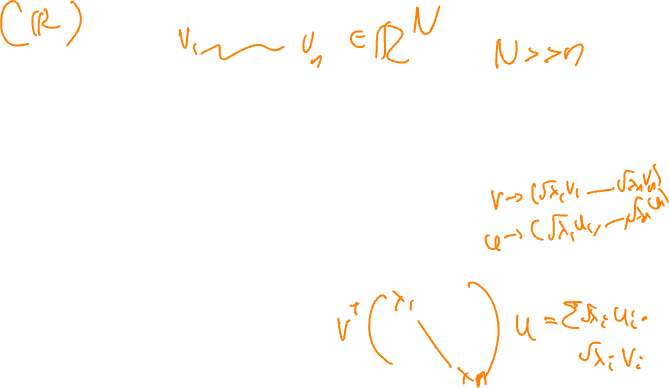 (ℝ) v₁ ~~~ v_n ∈ ℝ^N N>>n
v → (√λ₁ v₁ — √λ_n v_n)
u → (√λ₁ u₁, — √λ_n u_n)
v^T (λ₁ \ λ_n) u = Σ √λ_i u_i ·
√λ_i v_i